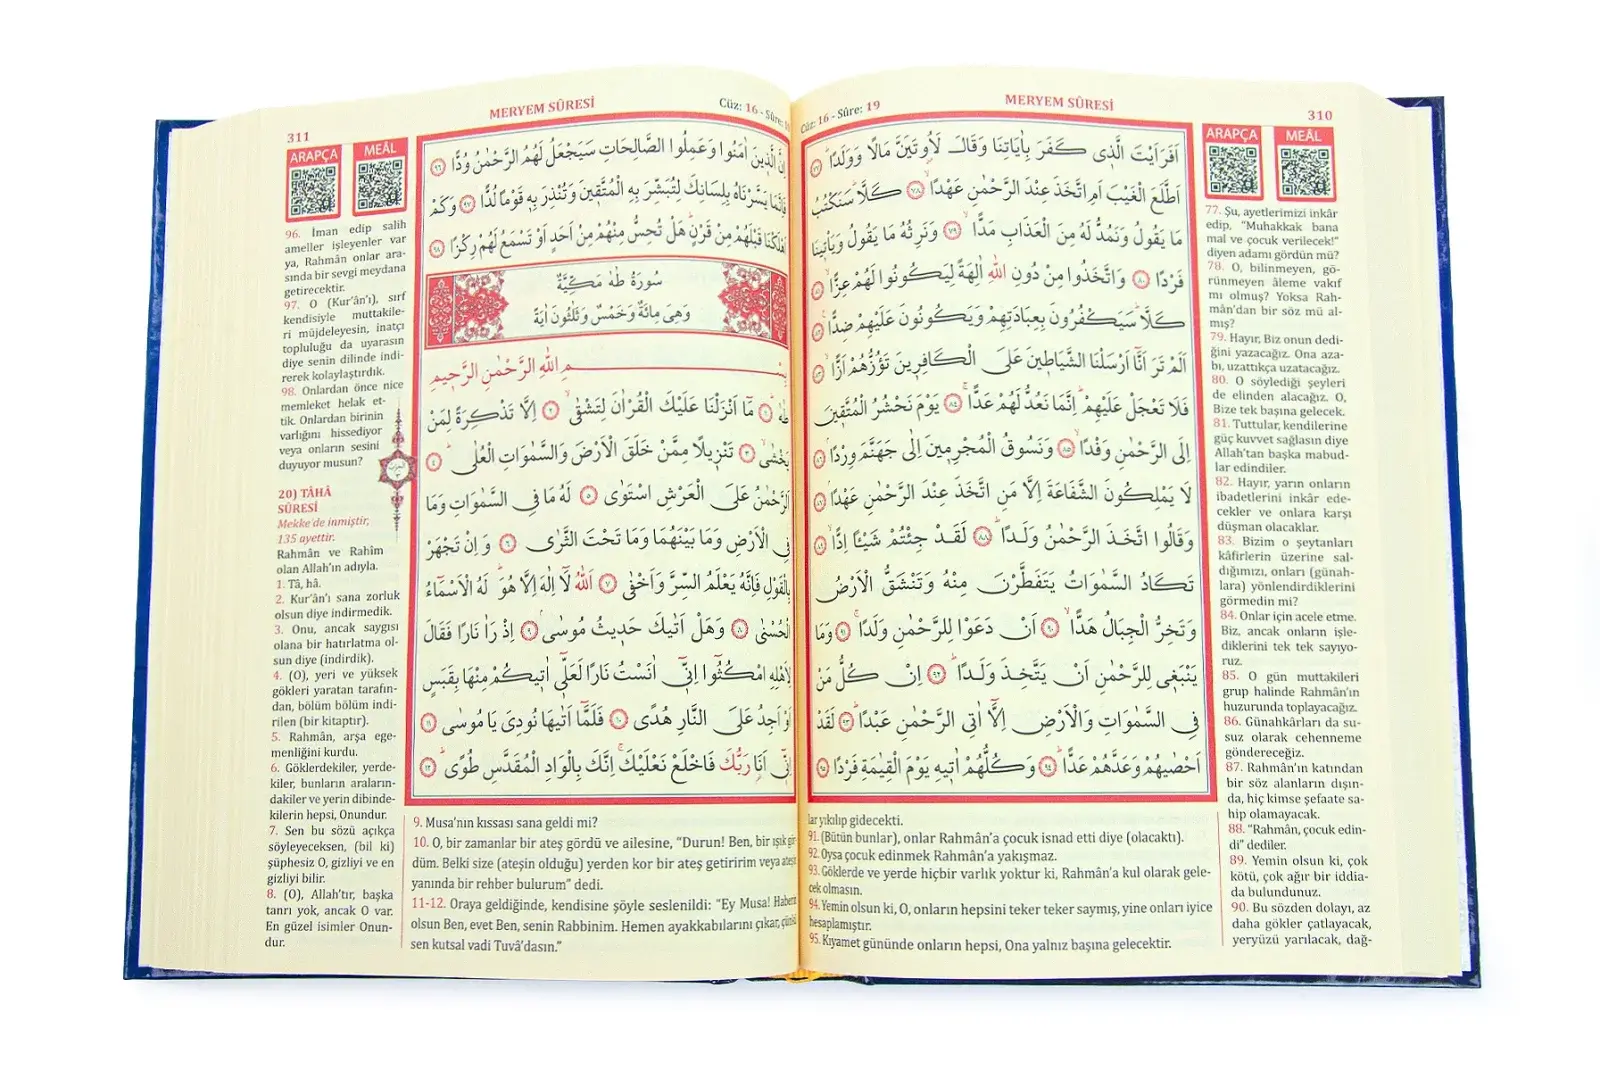 MERYEM SÛRESİ
310
Cüz: 16 - Sûre: 19
ARAPÇA
MEÂL
اَفَرَاَيْتَ الَّذ۪ي كَفَرَ بِاٰيَاتِنَا وَقَالَ لَاُو۫تَيَنَّ مَالًا وَوَلَدًا ٧٧
اَطَّلَعَ الْغَيْبَ اَمِ اتَّخَذَ عِنْدَ الرَّحْمٰنِ عَهْدًاۙ ٧٨ كَلَّاۜ سَنَكْتُبُ
مَا يَقُولُ وَنَمُدُّ لَهُ مِنَ الْعَذَابِ مَدًّاۙ ٧٩ وَنَرِثُهُ مَا يَقُولُ وَيَأْت۪ينَا
فَرْدًا ٨٠ وَاتَّخَذُوا مِنْ دُونِ اللّٰهِ اٰلِهَةً لِيَكُونُوا لَهُمْ عِزًّاۙ ٨١
كَلَّاۜ سَيَكْفُرُونَ بِعِبَادَتِهِمْ وَيَكُونُونَ عَلَيْهِمْ ضِدًّا۟ ٨٢
اَلَمْ تَرَ اَنَّٓا اَرْسَلْنَا الشَّيَاط۪ينَ عَلَى الْكَافِر۪ينَ تَؤُزُّهُمْ اَزًّاۙ ٨٣
فَلَا تَعْجَلْ عَلَيْهِمْۜ اِنَّمَا نَعُدُّ لَهُمْ عَدًّاۚ ٨٤ يَوْمَ نَحْشُرُ الْمُتَّق۪ينَ
اِلَى الرَّحْمٰنِ وَفْدًاۙ ٨٥ وَنَسُوقُ الْمُجْرِم۪ينَ اِلٰى جَهَنَّمَ وِرْدًاۢ ٨٦
لَا يَمْلِكُونَ الشَّفَاعَةَ اِلَّا مَنِ اتَّخَذَ عِنْدَ الرَّحْمٰنِ عَهْدًاۢ ٨٧
وَقَالُوا اتَّخَذَ الرَّحْمٰنُ وَلَدًاۜ ٨٨ لَقَدْ جِئْتُمْ شَيْـًٔا اِدًّاۙ ٨٩
تَكَادُ السَّمٰوَاتُ يَتَفَطَّرْنَ مِنْهُ وَتَنْشَقُّ الْاَرْضُ
وَتَخِرُّ الْجِبَالُ هَدًّاۙ ٩٠ اَنْ دَعَوْا لِلرَّحْمٰنِ وَلَدًاۚ ٩١ وَمَا
يَنْبَغ۪ي لِلرَّحْمٰنِ اَنْ يَتَّخِذَ وَلَدًاۜ ٩٢ اِنْ كُلُّ مَنْ
فِي السَّمٰوَاتِ وَالْاَرْضِ اِلَّٓا اٰتِي الرَّحْمٰنِ عَبْدًاۜ ٩٣ لَقَدْ
اَحْصٰيهُمْ وَعَدَّهُمْ عَدًّاۜ ٩٤ وَكُلُّهُمْ اٰت۪يهِ يَوْمَ الْقِيٰمَةِ فَرْدًا ٩٥
77. Şu, ayetlerimizi inkâr
edip, "Muhakkak bana
mal ve çocuk verilecek!"
diyen adamı gördün mü?
78. O, bilinmeyen, gö-
rünmeyen âleme vakıf
mı olmuş? Yoksa Rah-
mân'dan bir söz mü al-
mış?
79. Hayır, Biz onun dedi-
ğini yazacağız. Ona aza-
bı, uzattıkça uzatacağız.
80. O söylediği şeyleri
de elinden alacağız. O,
Bize tek başına gelecek.
81. Tuttular, kendilerine
güç kuvvet sağlasın diye
Allah'tan başka mabud-
lar edindiler.
82. Hayır, yarın onların
ibadetlerini inkâr ede-
cekler ve onlara karşı
düşman olacaklar.
83. Bizim o şeytanları
kâfirlerin üzerine sal-
dığımızı, onları (günah-
lara) yönlendirdiklerini
görmedin mi?
84. Onlar için acele etme.
Biz, ancak onların işle-
diklerini tek tek sayıyo-
ruz.
85. O gün muttakileri
grup halinde Rahmân'ın
huzurunda toplayacağız.
86. Günahkârları da su-
suz olarak cehenneme
göndereceğiz.
87. Rahmân'ın katından
bir söz alanların dışın-
da, hiç kimse şefaate sa-
hip olamayacak.
88. "Rahmân, çocuk edin-
di" dediler.
89. Yemin olsun ki, çok
kötü, çok ağır bir iddia-
da bulundunuz.
90. Bu sözden dolayı, az
daha gökler çatlayacak,
yeryüzü yarılacak, dağ-
lar yıkılıp gidecekti.
91. (Bütün bunlar), onlar Rahmân'a çocuk isnad etti diye (olacaktı).
92. Oysa çocuk edinmek Rahmân'a yakışmaz.
93. Göklerde ve yerde hiçbir varlık yoktur ki, Rahmân'a kul olarak gele-
cek olmasın.
94. Yemin olsun ki, O, onların hepsini teker teker saymış, yine onları iyice
hesaplamıştır.
95. Kıyamet gününde onların hepsi, Ona yalnız başına gelecektir.
311
MERYEM SÛRESİ
Cüz: 16 - Sûre:
ARAPÇA
MEÂL
اِنَّ الَّذ۪ينَ اٰمَنُوا وَعَمِلُوا الصَّالِحَاتِ سَيَجْعَلُ لَهُمُ الرَّحْمٰنُ وُدًّا ٩٦
فَاِنَّمَا يَسَّرْنَاهُ بِلِسَانِكَ لِتُبَشِّرَ بِهِ الْمُتَّق۪ينَ وَتُنْذِرَ بِه۪ قَوْمًا لُدًّا ٩٧ وَكَمْ
اَهْلَكْنَا قَبْلَهُمْ مِنْ قَرْنٍۜ هَلْ تُحِسُّ مِنْهُمْ مِنْ اَحَدٍ اَوْ تَسْمَعُ لَهُمْ رِكْزًا ٩٨
سُورَةُ طٰهٰ مَكِّيَّةٌ
وَهِيَ مِائَةٌ وَخَمْسٌ وَثَلٰثُونَ اٰيَةً
بِسْمِ اللّٰهِ الرَّحْمٰنِ الرَّح۪يمِ
طٰهٰۜ ١ مَٓا اَنْزَلْنَا عَلَيْكَ الْقُرْاٰنَ لِتَشْقٰىۙ ٢ اِلَّا تَذْكِرَةً لِمَنْ
يَخْشٰىۙ ٣ تَنْز۪يلًا مِمَّنْ خَلَقَ الْاَرْضَ وَالسَّمٰوَاتِ الْعُلٰىۜ ٤
اَلرَّحْمٰنُ عَلَى الْعَرْشِ اسْتَوٰى ٥ لَهُ مَا فِي السَّمٰوَاتِ وَمَا
فِي الْاَرْضِ وَمَا بَيْنَهُمَا وَمَا تَحْتَ الثَّرٰى ٦ وَاِنْ تَجْهَرْ
بِالْقَوْلِ فَاِنَّهُ يَعْلَمُ السِّرَّ وَاَخْفٰى ٧ اَللّٰهُ لَٓا اِلٰهَ اِلَّا هُوَۜ لَهُ الْاَسْمَٓاءُ
الْحُسْنٰى ٨ وَهَلْ اَتٰيكَ حَد۪يثُ مُوسٰىۢ ٩ اِذْ رَاٰ نَارًا فَقَالَ
لِاَهْلِهِ امْكُثُٓوا اِنّ۪ٓي اٰنَسْتُ نَارًا لَعَلّ۪ٓي اٰت۪يكُمْ مِنْهَا بِقَبَسٍ
اَوْ اَجِدُ عَلَى النَّارِ هُدًى ١٠ فَلَمَّٓا اَتٰيهَا نُودِيَ يَا مُوسٰى ١١
اِنّ۪ٓي اَنَا۬ رَبُّكَ فَاخْلَعْ نَعْلَيْكَۚ اِنَّكَ بِالْوَادِ الْمُقَدَّسِ طُوًىۜ ١٢
96. İman edip salih
ameller işleyenler var
ya, Rahmân onlar ara-
sında bir sevgi meydana
getirecektir.
97. O (Kur'ân'ı), sırf
kendisiyle muttakile-
ri müjdeleyesin, inatçı
topluluğu da uyarasın
diye senin dilinde indi-
rerek kolaylaştırdık.
98. Onlardan önce nice
memleket helak et-
tik. Onlardan birinin
varlığını hissediyor
veya onların sesini
duyuyor musun?
20) TÂHÂ
SÛRESİ
Mekke'de inmiştir,
135 ayettir.
Rahmân ve Rahîm
olan Allah'ın adıyla.
1. Tâ, hâ.
2. Kur'ân'ı sana zorluk
olsun diye indirmedik.
3. Onu, ancak saygısı
olana bir hatırlatma ol-
sun diye (indirdik).
4. (O), yeri ve yüksek
gökleri yaratan tarafın-
dan, bölüm bölüm indi-
rilen (bir kitaptır).
5. Rahmân, arşa ege-
menliğini kurdu.
6. Göklerdekiler, yerde-
kiler, bunların araların-
dakiler ve yerin dibinde-
kilerin hepsi, Onundur.
7. Sen bu sözü açıkça
söyleyeceksen, (bil ki)
şüphesiz O, gizliyi ve en
gizliyi bilir.
8. (O), Allah'tır, başka
tanrı yok, ancak O var.
En güzel isimler Onun-
dur.
9. Musa'nın kıssası sana geldi mi?
10. O, bir zamanlar bir ateş gördü ve ailesine, "Durun! Ben, bir ışık gör-
düm. Belki size (ateşin olduğu) yerden kor bir ateş getiririm veya ateşin
yanında bir rehber bulurum" dedi.
11-12. Oraya geldiğinde, kendisine şöyle seslenildi: "Ey Musa! Haberin
olsun Ben, evet Ben, senin Rabbinim. Hemen ayakkabılarını çıkar, çünkü
sen kutsal vadi Tuvâ'dasın."